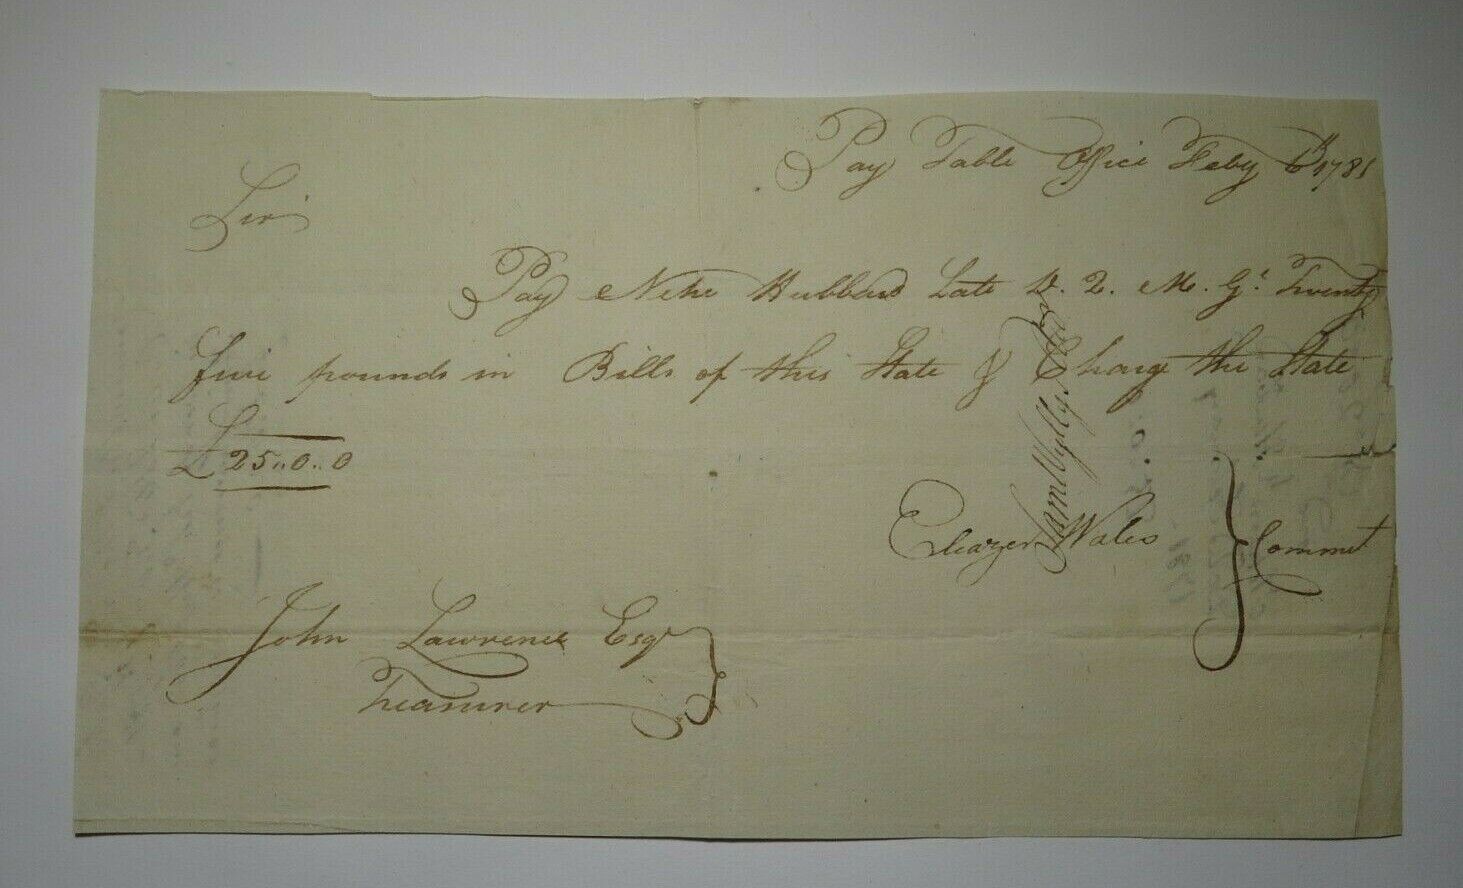 Pay Table Office Feby 6th 1781
Sir
Pay Nehe Hubbard Late D. Q. M. Gl. Twenty
five pounds in Bills of this State & Charge the State
£25..0..0
Eleazer Wales } Committ
Saml Wyllys
John Lawrence Esqr }
Treasurer